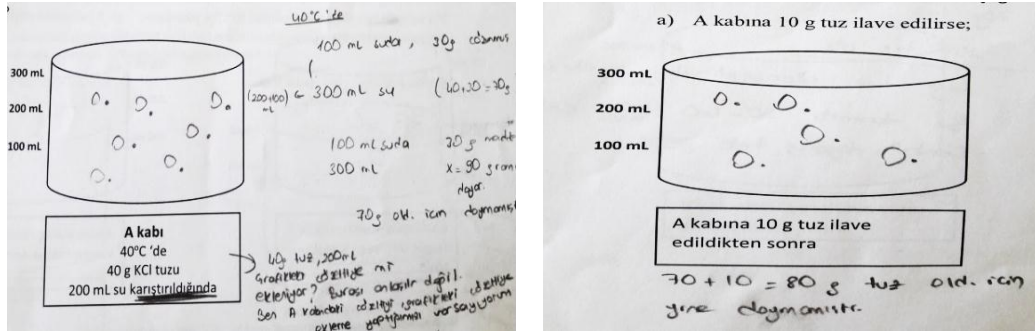 40°C'de
100 mL suda, 30g çözünmüş
300 mL
200 mL
100 mL
(200+100) mL ← 300 mL su (40+30=70g
100 mL suda 30 g
300 mL x = 90 gram
doyar.
70g old. için doymamış
A kabı
40°C 'de
40 g KCl tuzu
200 mL su karıştırıldığında
40g tuz, 200mL
Grafikteki çözeltiye mi
ekleniyor? Burası anlaşılır değil.
Ben A kabındaki çözeltiyi, grafikteki çözeltiye
ekleme yaptığımızı varsayıyorum
a) A kabına 10 g tuz ilave edilirse;
300 mL
200 mL
100 mL
A kabına 10 g tuz ilave
edildikten sonra
70 + 10 = 80 g tuz old. için
yine doymamıştır.